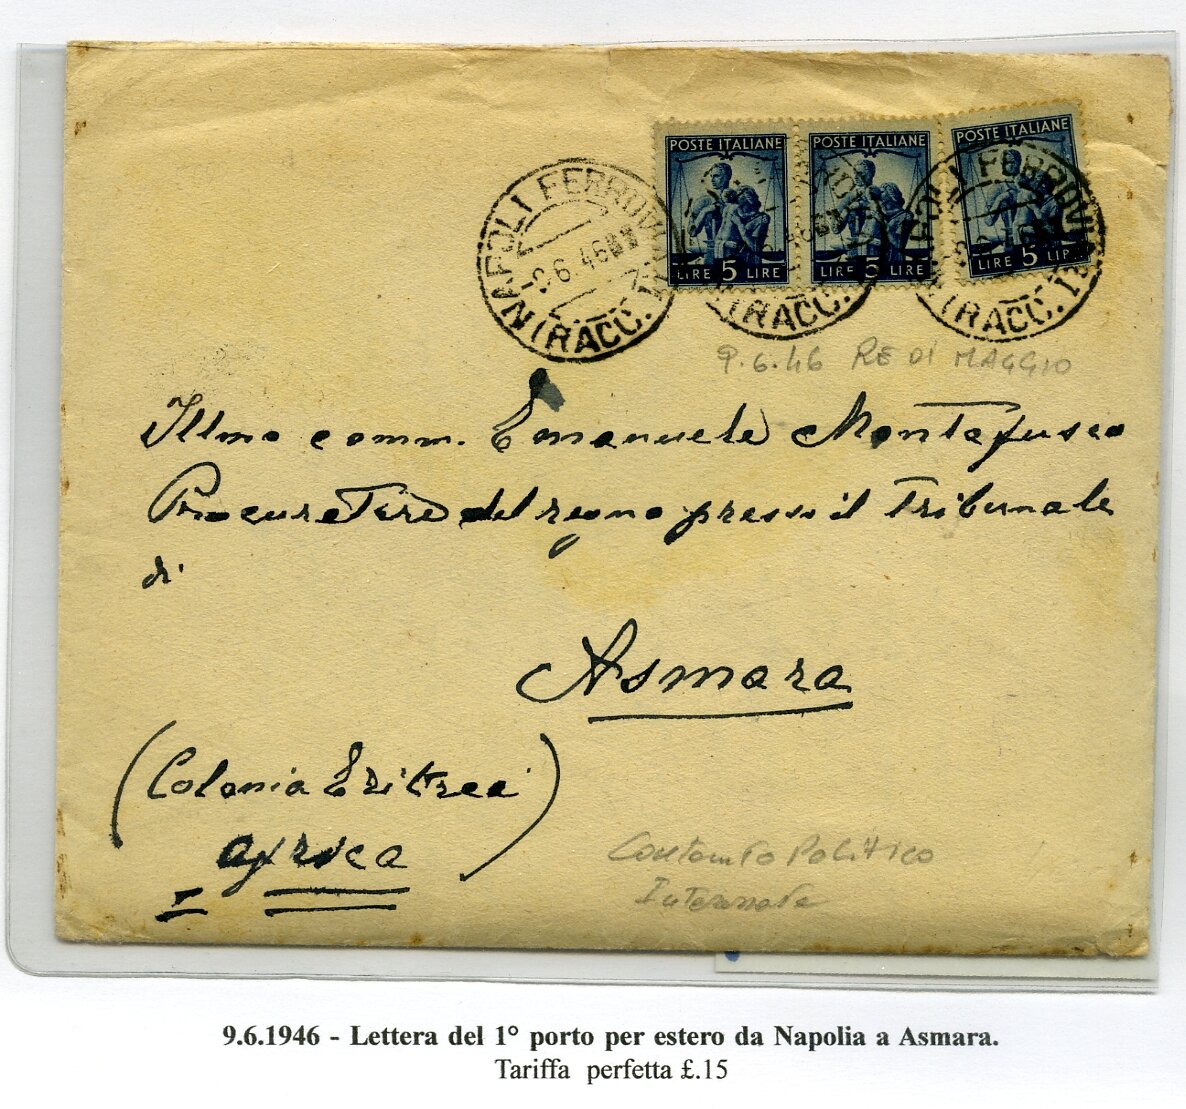 POSTE ITALIANE
LIRE 5 LIRE
POSTE ITALIANE
LIRE 5 LIRE
POSTE ITALIANE
LIRE 5 LIRE
NAPOLI FERROVIA
-9.6.46
(RACC.
(RACC.
(RACC.
9.6.46 RE DI MAGGIO
Illmo comm. Emanuele Montefusco
Procuratore del regno presso il Tribunale
di
Asmara
(Colonia Eritrea)
Africa
Contenuto Politico
Interessante
9.6.1946 - Lettera del 1° porto per estero da Napolia a Asmara.
Tariffa perfetta £.15